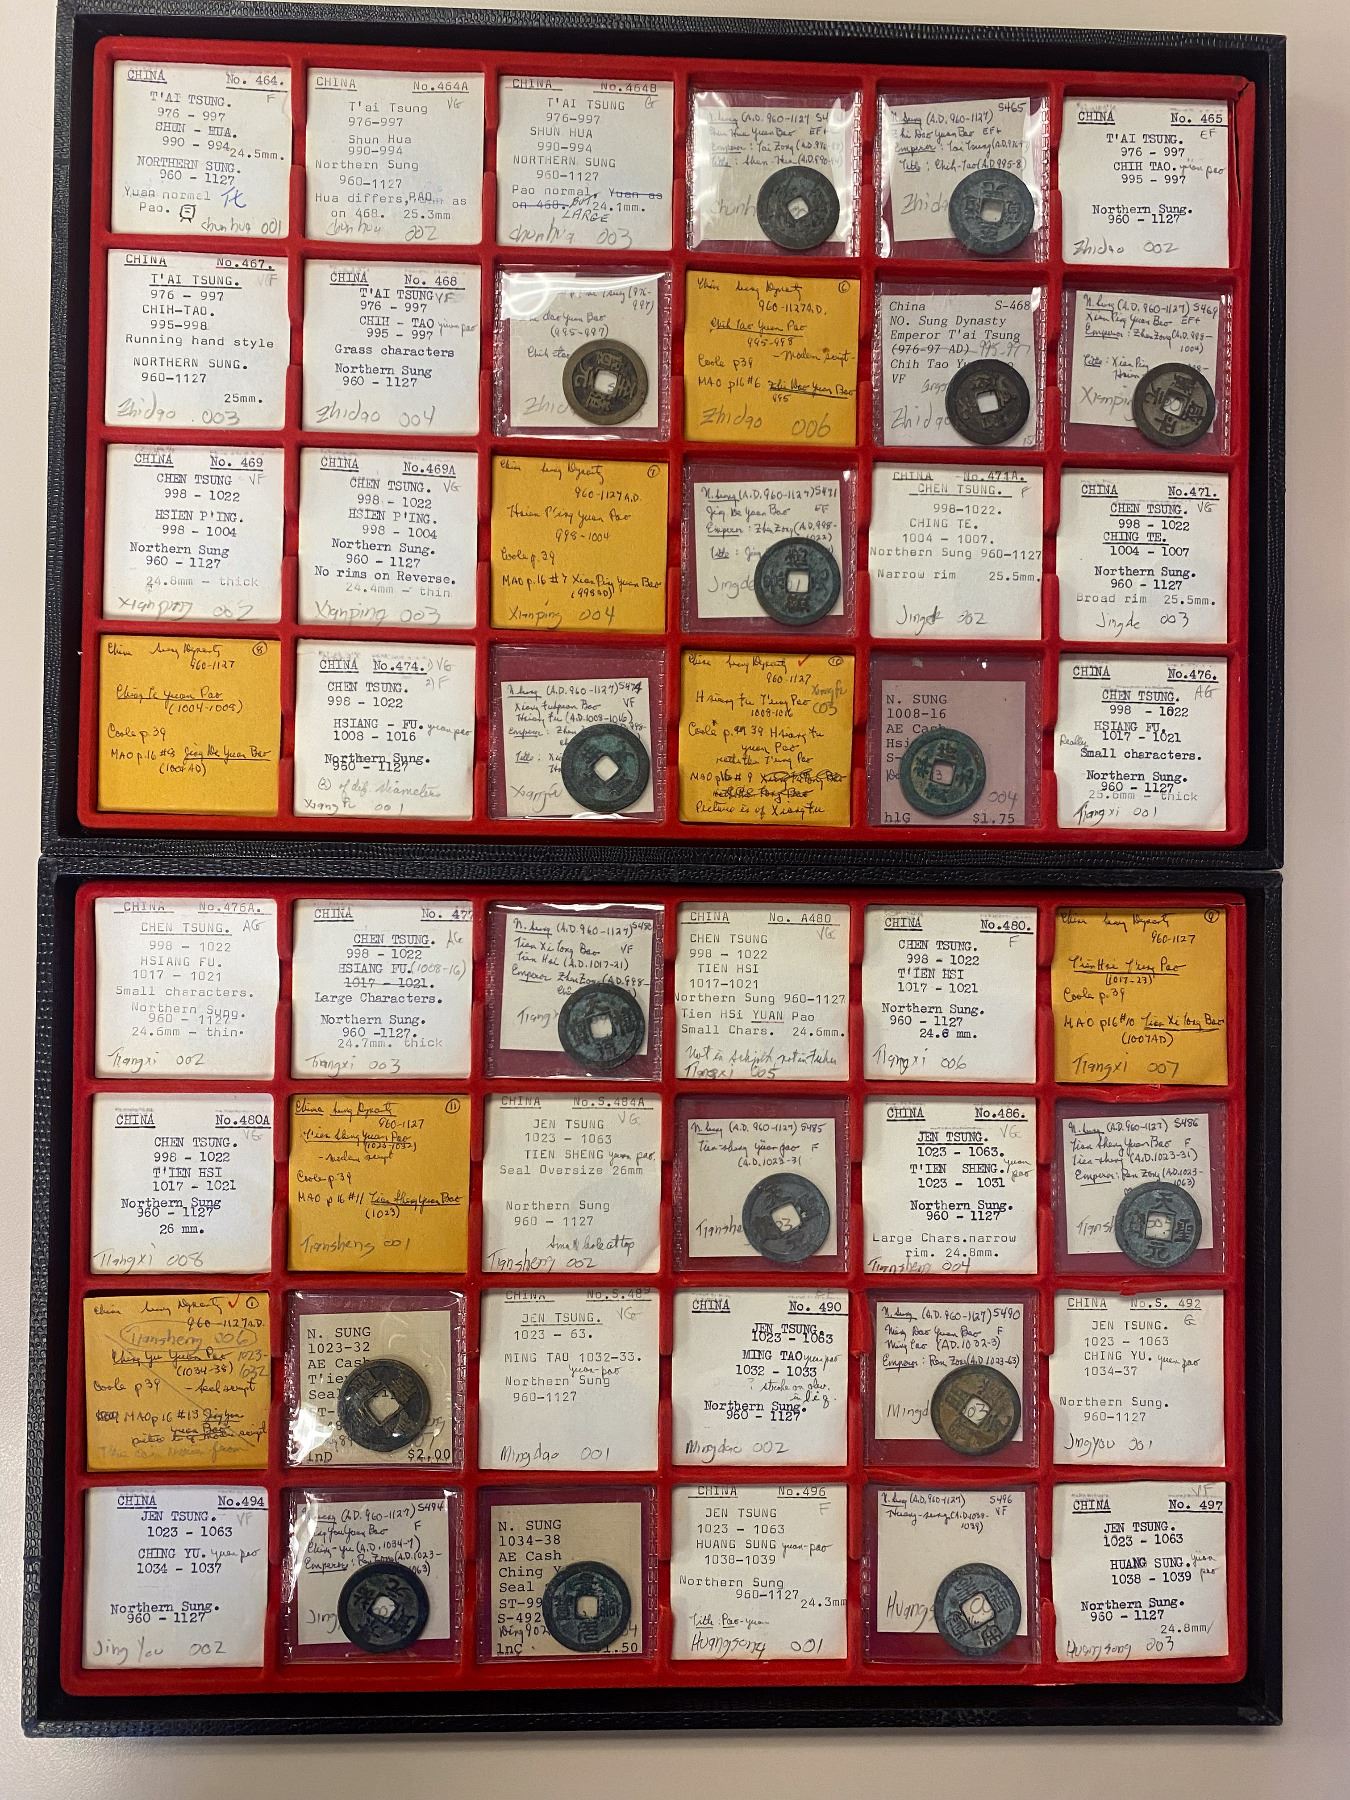 CHINA No. 464.
T'AI TSUNG. F
976 - 997
SHUN - HUA.
990 - 994
24.5mm.
NORTHERN SUNG.
960 - 1127
Yuan normal
Pao.
chunhua 001
CHINA No.464A
T'ai Tsung VG
976-997
Shun Hua
990-994
Northern Sung
960-1127
Hua differs, as
on 468. 25.3mm
chunhua 002
CHINA No.464B
T'AI TSUNG G
976-997
SHUN HUA
990-994
NORTHERN SUNG
960-1127
Pao normal, Yuan as
on 468. 24.1mm.
LARGE
chunhua 003
N. Sung (A.D. 960-1127)
Shun Hua Yuan Bao EF+
Emperor: Tai Zong
Title: Shun-Hua
S465
N. Sung (A.D. 960-1127)
Zhi Dao Yuan Bao EF+
Emperor: Tai Zong
Title: Chih-Tao (A.D 995-8)
Zhida
CHINA No. 465
T'AI TSUNG. EF
976 - 997
CHIH TAO. yüan pao
995 - 997
Northern Sung.
960 - 1127
Zhidao 002
CHINA No.467.
T'AI TSUNG. VF
976 - 997
CHIH-TAO.
995-998
Running hand style
NORTHERN SUNG.
960-1127
25mm.
Zhidao 003
CHINA No. 468
T'AI TSUNG VF
976 - 997
CHIH - TAO yüan pao
995 - 997
Grass characters
Northern Sung
960 - 1127
Zhidao 004
dao Yuan Bao
(995-997)
Zhid
China Sung Dynasty 6
960-1127 A.D.
Chih Tao Yuan Pao
995-998
- Modern script -
Coole p39
MAO p16 #6 Zhi Dao Yuan Bao
995
Zhidao 006
China S-468
NO. Sung Dynasty
Emperor T'ai Tsung
(976-97 AD) 995-977
Chih Tao Yu
VF
Zhidao
N. Sung (A.D. 960-1127) S469
Xian Ping Yuan Bao EF+
Emperor: Zhen Zong (A.D. 998-
Title: Xian Ping
Xianpin
CHINA No. 469
CHEN TSUNG VF
998 - 1022
HSIEN P'ING.
998 - 1004
Northern Sung
960 - 1127
24.8mm - thick
Xianping 002
CHINA No.469A
CHEN TSUNG. VG
998 - 1022
HSIEN P'ING.
998 - 1004
Northern Sung.
960 - 1127
No rims on Reverse.
24.4mm - thin
Xianping 003
China Sung Dynasty 7
960-1127 A.D.
Hsien P'ing Yuan Pao
998-1004
Coole p.39
MAO p.16 #7 Xian Ping Yuan Bao
(998AD)
Xianping 004
N. Sung (A.D. 960-1127) S471
Jing De Yuan Bao EF
Emperor: Zhen Zong (A.D. 998-
1022)
Title: Jing
Jingde
CHINA No.471A.
CHEN TSUNG. F
998-1022.
CHING TE.
1004 - 1007.
Northern Sung 960-1127
Narrow rim 25.5mm.
Jingde 002
CHINA No.471.
CHEN TSUNG. VG
998 - 1022
CHING TE.
1004 - 1007
Northern Sung.
960 - 1127
Broad rim 25.5mm.
Jingde 003
China Sung Dynasty 8
960-1127
Ching Te Yuan Pao
(1004-1008)
Coole p.39
MAO p16 #8 Jing De Yuan Bao
(1004 AD)
CHINA No.474. VG
CHEN TSUNG. F
998 - 1022
HSIANG - FU. yuan pao
1008 - 1016
Northern Sung.
960 - 1127
(2) of dif. diameters
Xiang Fu 001
N. Sung (A.D. 960-1127) S474
Xiang fu Yuan Bao VF
Hsiang Fu (A.D. 1008-1016)
Emperor: Zhen
Title:
Xiangfu
China Sung Dynasty 10
960-1127
Hsiang Fu T'ung Pao
1008-1016
Xiangfu 003
Coole p. 39 Hsiang Fu
Yuan Pao
rather than T'ung Pao
MAO p16 # 9
Picture is of Xiang Fu
N. SUNG
1008-16
AE Cas
Hsi
S-
004
h1G $1.75
CHINA No.476.
CHEN TSUNG. AG
998 - 1022
HSIANG FU.
1017 - 1021
Really Small characters.
Northern Sung.
960 - 1127
25.6mm - thick
Tianxi 001
CHINA No.476A.
CHEN TSUNG. AG
998 - 1022
HSIANG FU.
1017 - 1021
Small characters.
Northern Sung.
960 - 1127
24.6mm - thin.
Tiangxi 002
CHINA No. 477
CHEN TSUNG. AG
998 - 1022
HSIANG FU. (1008-16)
1017 - 1021.
Large Characters.
Northern Sung.
960 -1127.
24.7mm. thick
Tiangxi 003
N. Sung (A.D. 960-1127) S480
Tian Xi Tong Bao VF
Tian Hsi (A.D. 1017-21)
Emperor Zhen Zong (A.D. 998-
Tiang
CHINA No. A480
CHEN TSUNG VG
998 - 1022
TIEN HSI
1017-1021
Northern Sung 960-1127
Tien HSi YUAN Pao
Small Chars. 24.6mm.
Not in Schjoth, not in Fisher
Tiangxi 005
CHINA No.480.
CHEN TSUNG. F
998 - 1022
T'IEN HSI
1017 - 1021
Northern Sung.
960 - 1127
24.6 mm.
Tiangxi 006
China Sung Dynasty 9
960-1127
T'ien Hsi T'ung Pao
(1017-23)
Coole p.39
MAO p16 #10 Tian Xi Tong Bao
(1007AD)
Tiangxi 007
CHINA No.480A
CHEN TSUNG. VG
998 - 1022
T'IEN HSI
1017 - 1021
Northern Sung
960 - 1127
26 mm.
Tiangxi 008
China Sung Dynasty 11
960-1127
T'ien Sheng Yuan Pao
(1023-1032)
- modern script
Coole p.39
MAO p 16 #11 Tian Sheng Yuan Bao
(1023)
Tiansheng 001
CHINA No.S.484A
JEN TSUNG VG
1023 - 1063
TIEN SHENG yuan pao.
Seal Oversize 26mm
Northern Sung
960 - 1127
Small hole at top
Tiansheng 002
N. Sung (A.D. 960-1127) S485
tian-sheng yüan pao F
(A.D. 1023-31
Tianshe
CHINA No.486.
JEN TSUNG. VG
1023 - 1063.
T'IEN SHENG. yuan pao
1023 - 1031
Northern Sung.
960 - 1127
Large Chars.narrow
rim. 24.8mm.
Tiansheng 004
N. Sung (A.D. 960-1127) S486
Tian Sheng Yuan Bao F
Tian-sheng (A.D. 1023-31)
Emperor: Ren Zong (A.D. 1023-
1063)
Tiansh
天聖元
China Sung Dynasty 1
960-1127 A.D.
Tiansheng 006
Ching Yu Yuan Pao 1023-
(1034-38) 1032
Coole p39 - seal script
MAO p 16 #13 Jing You
Yuan Bao
N. SUNG
1023-32
AE Cash
T'ie
Seal
ST-
1nD $2.00
CHINA No.S.489
JEN TSUNG. VG
1023 - 63.
MING TAO 1032-33.
yuan-pao
Northern Sung
960-1127
Mingdao 001
CHINA No. 490
JEN TSUNG.
1023 - 1063
MING TAO yuan pao
1032 - 1033
? stroke on obv.
Northern Sung.
960 - 1127
Mingdao 002
N. Sung (A.D. 960-1127) S490
Ming Dao Yuan Bao F
Ming Tao (A.D. 1032-3)
Emperor: Ren Zong (A.D. 1023-63)
Mingd
CHINA No.S. 492
JEN TSUNG. G
1023 - 1063
CHING YU. yuan pao
1034-37
Northern Sung.
960-1127
Jingyou 001
CHINA No.494
JEN TSUNG. VF
1023 - 1063
CHING YU. yuan pao
1034 - 1037
Northern Sung.
960 - 1127
Jing You 002
N. Sung (A.D. 960-1127) S494
Jing You Yuan Bao F
Ching-yu (A.D. 1034-7)
Emperor: Ren Zong (A.D. 1023-
1063)
Jing
N. SUNG
1034-38
AE Cash
Ching Y
Seal
ST-99
S-492
1nC 1.50
CHINA No.496
JEN TSUNG F
1023 - 1063
HUANG SUNG yuan-pao
1038-1039
Northern Sung
960-1127
24.3mm
Title: Pao-yuan
Huangsong 001
N. Sung (A.D. 960-1127) S496
Huang-sung (A.D. 1038- VF
1039)
Huangs
CHINA No. 497 VF
JEN TSUNG.
1023 - 1063
HUANG SUNG. yüan pao
1038 - 1039
Northern Sung.
960 - 1127
24.8mm/
Huangsong 003